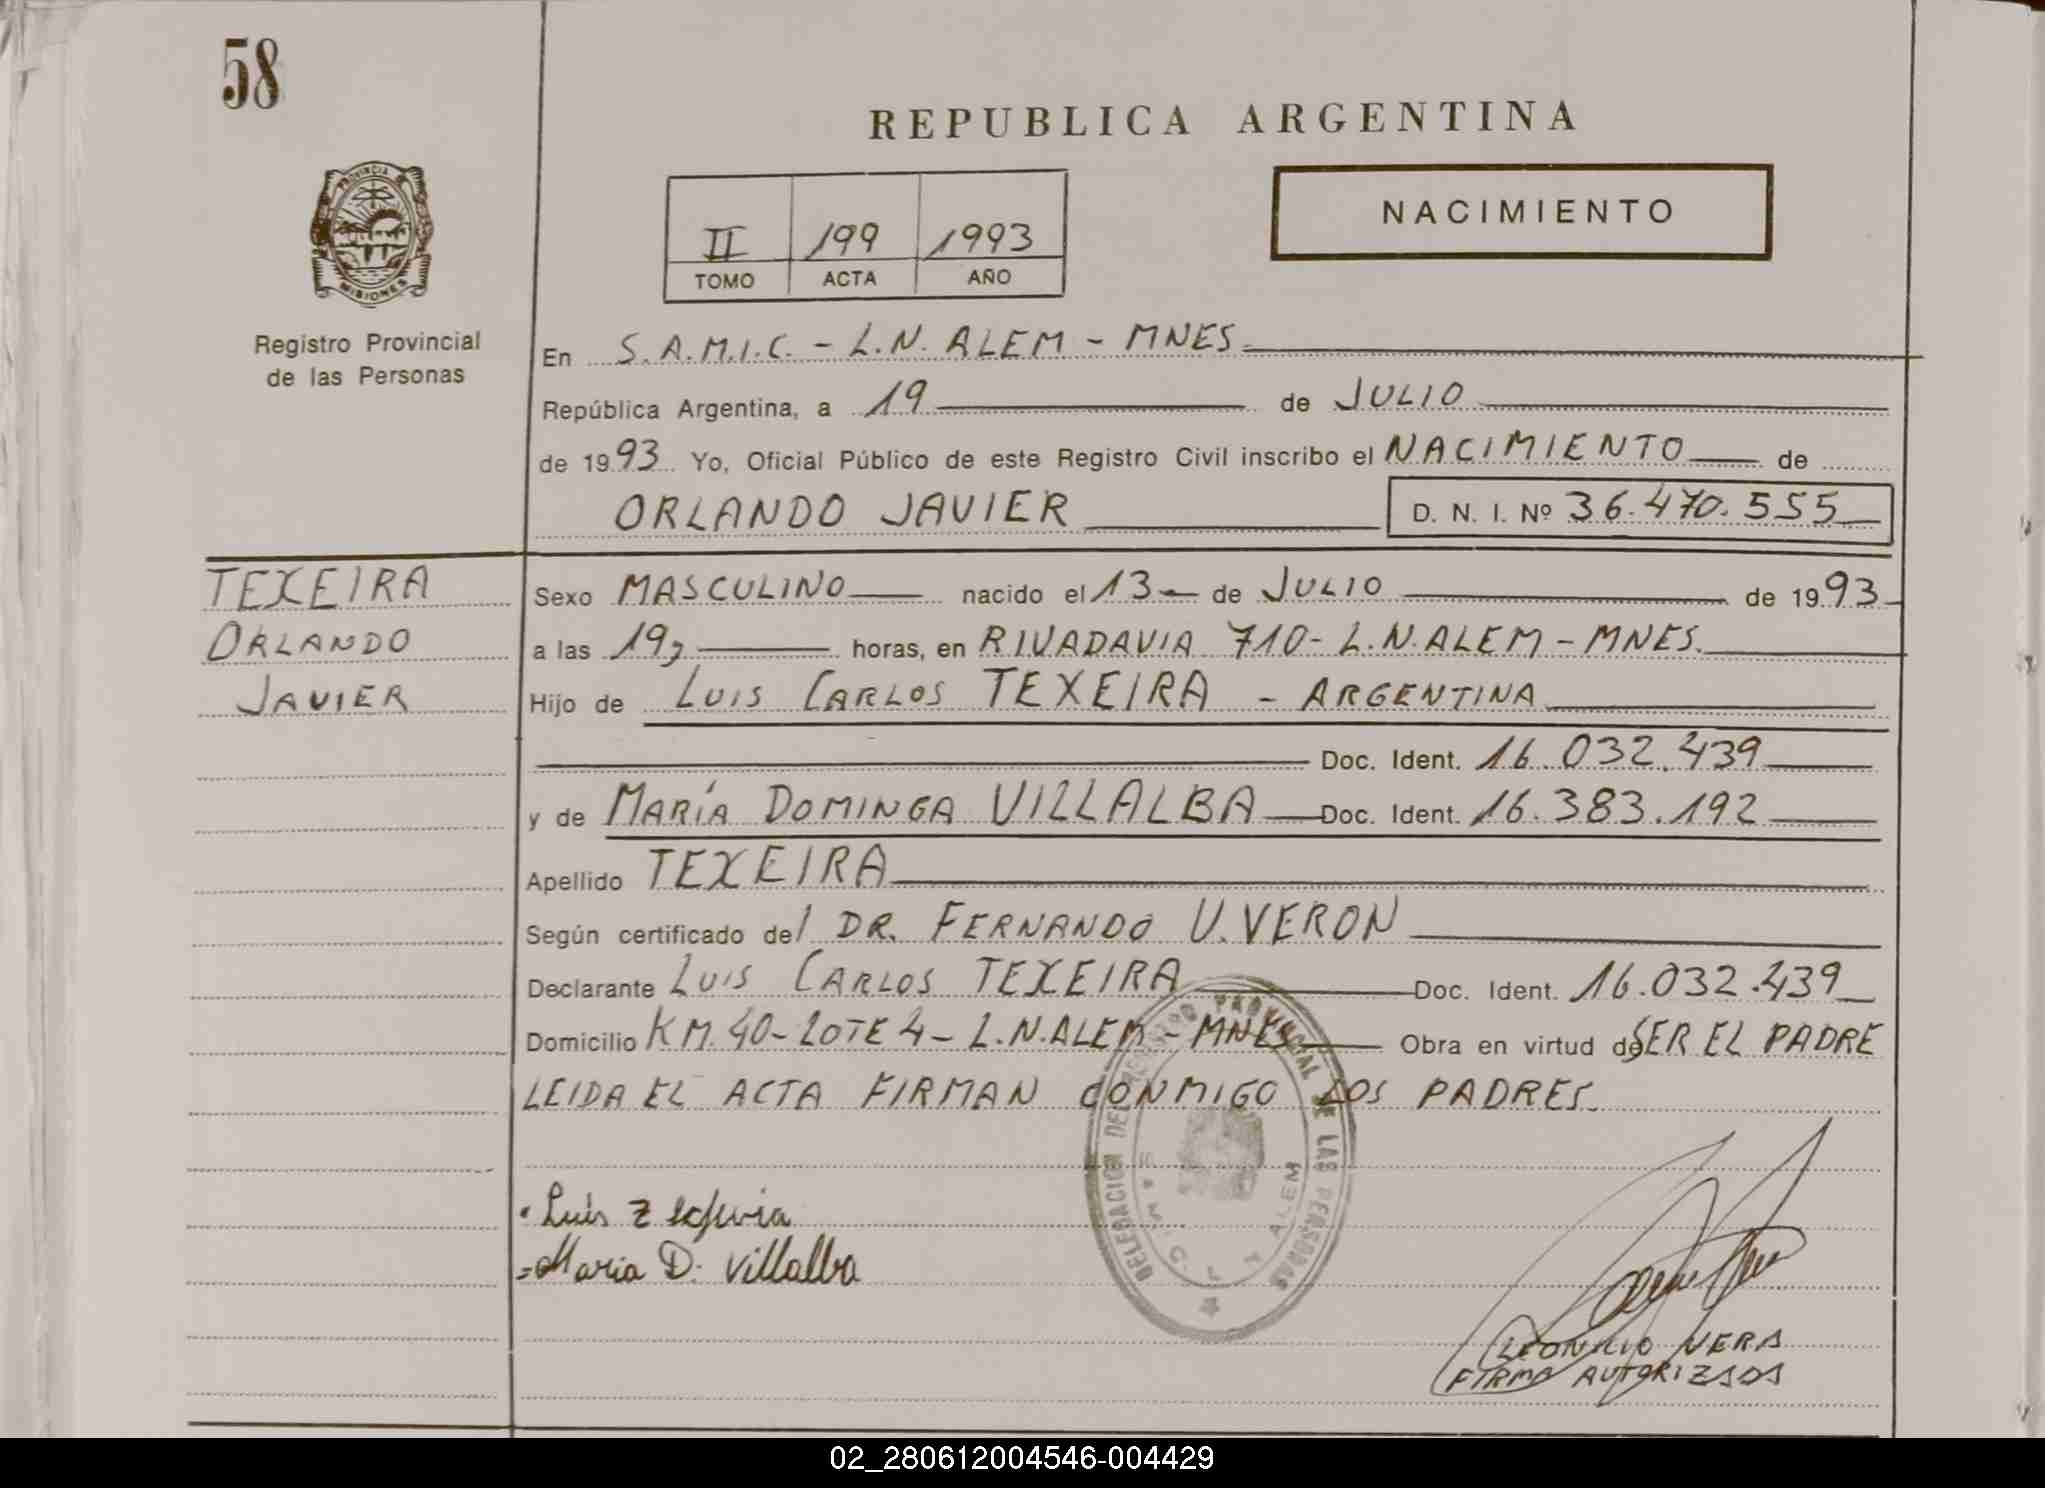 58
REPUBLICA ARGENTINA
PROVINCIA DE
MISIONES
Registro Provincial
de las Personas
II 199 1993
TOMO ACTA AÑO
NACIMIENTO
En S.A.M.I.C. - L.N. ALEM - MNES.
República Argentina, a 19 de JULIO
de 1993 Yo, Oficial Público de este Registro Civil inscribo el NACIMIENTO de
ORLANDO JAVIER D. N. I. Nº 36.470.555
TEXEIRA
ORLANDO
JAVIER
Sexo MASCULINO nacido el 13 de JULIO de 1993
a las 19, horas, en RIVADAVIA 710 - L.N. ALEM - MNES.
Hijo de LUIS CARLOS TEXEIRA - ARGENTINA
Doc. Ident. 16.032.439
y de MARÍA DOMINGA VILLALBA Doc. Ident. 16.383.192
Apellido TEXEIRA
Según certificado del DR. FERNANDO U. VERON
Declarante LUIS CARLOS TEXEIRA Doc. Ident. 16.032.439
Domicilio KM. 40 - LOTE 4 - L.N. ALEM - MNES Obra en virtud de SER EL PADRE
LEIDA EL ACTA FIRMAN CONMIGO LOS PADRES.
DELEGACION DEL REGISTRO PROVINCIAL DE LAS PERSONAS
ALEM
Luis
Maria D. Villalba
LEONILIO VERA
FIRMA AUTORIZADA
02_280612004546-004429